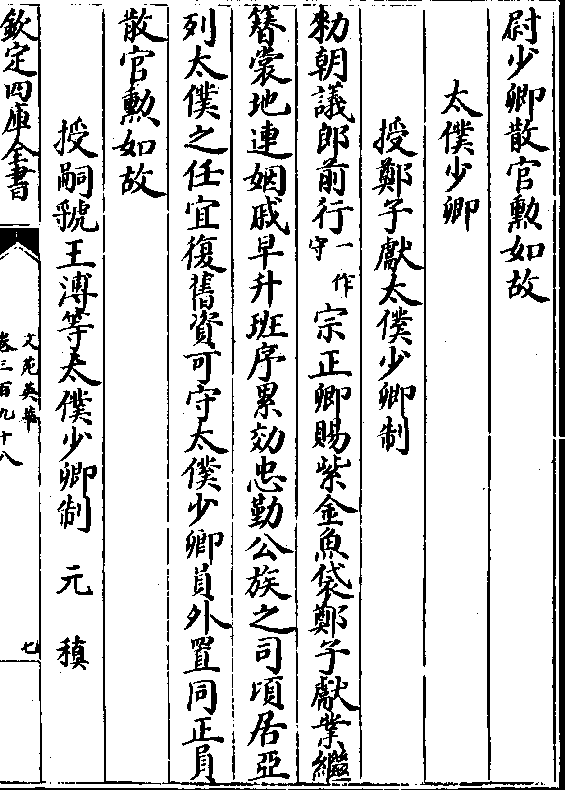 尉少卿散官勲如故
太僕少卿
授鄭子獻太僕少卿制
勅朝議郎前行一作守宗正卿賜紫金魚袋鄭子獻業繼
簪裳地連姻戚早升班序累効忠勤公族之司頃居亞
列太僕之任宜復舊資可守太僕少卿員外置同正員
散官勲如故
授嗣虢王溥等太僕少卿制 元稹
欽定四庫全書
文苑英華
卷三百九十八
七